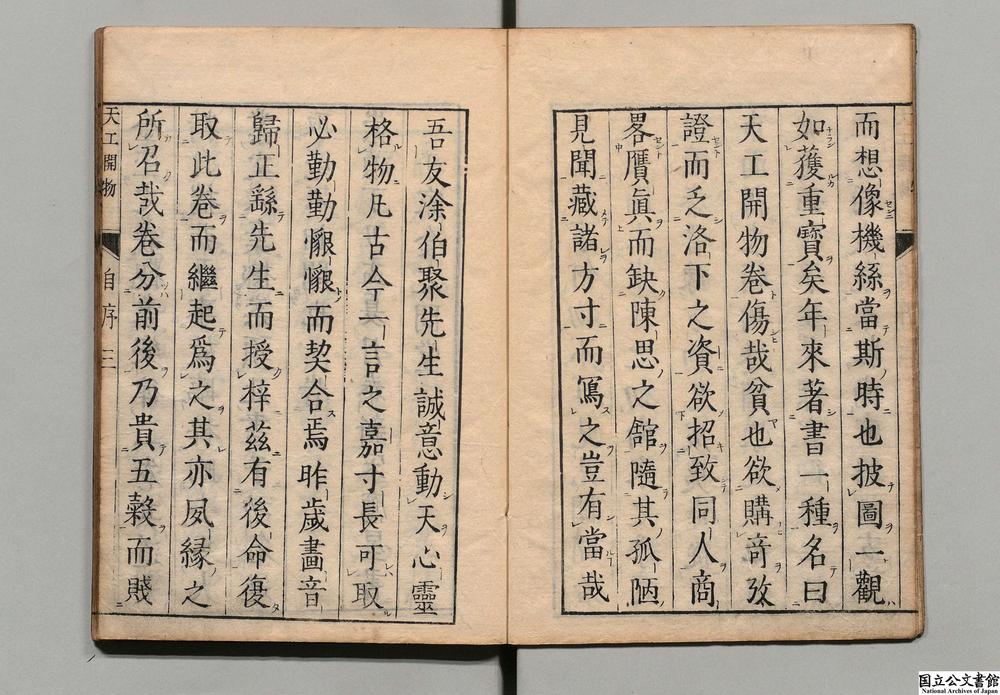 而想像機絲當斯時也披圖一觀
如獲重寶矣年來著書一種名曰
天工開物卷傷哉貧也欲購奇攷
證而乏洛下之資欲招致同人商
畧贋眞而缺陳思之館隨其孤陋
見聞藏諸方寸而寫之豈有當哉
吾友涂伯聚先生誠意動天心靈
格物凡古今一言之嘉寸長可取
必勤勤懇懇而契合焉昨歲畫音
歸正繇先生而授梓茲有後命復
取此卷而繼起爲之其亦夙緣之
所召哉卷分前後乃貴五穀而賤
天工開物 自序 三
国立公文書館
National Archives of Japan